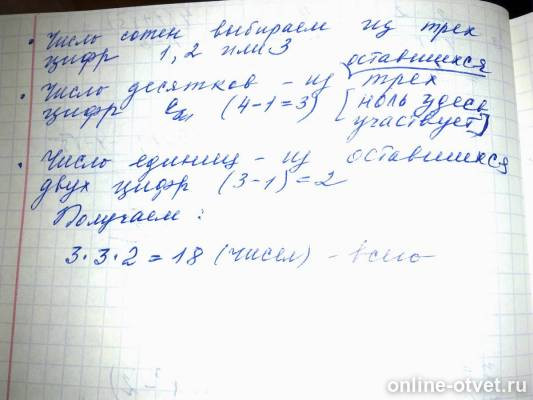 • Число сотен выбираем из трех
цифр 1, 2 или 3
оставшихся
• Число десятков – из трех
цифр (4-1=3) [ноль здесь
участвует]
• Число единиц – из оставшихся
двух цифр (3-1)=2
Получаем:
3·3·2 = 18 (чисел) – всего
online-otvet.ru